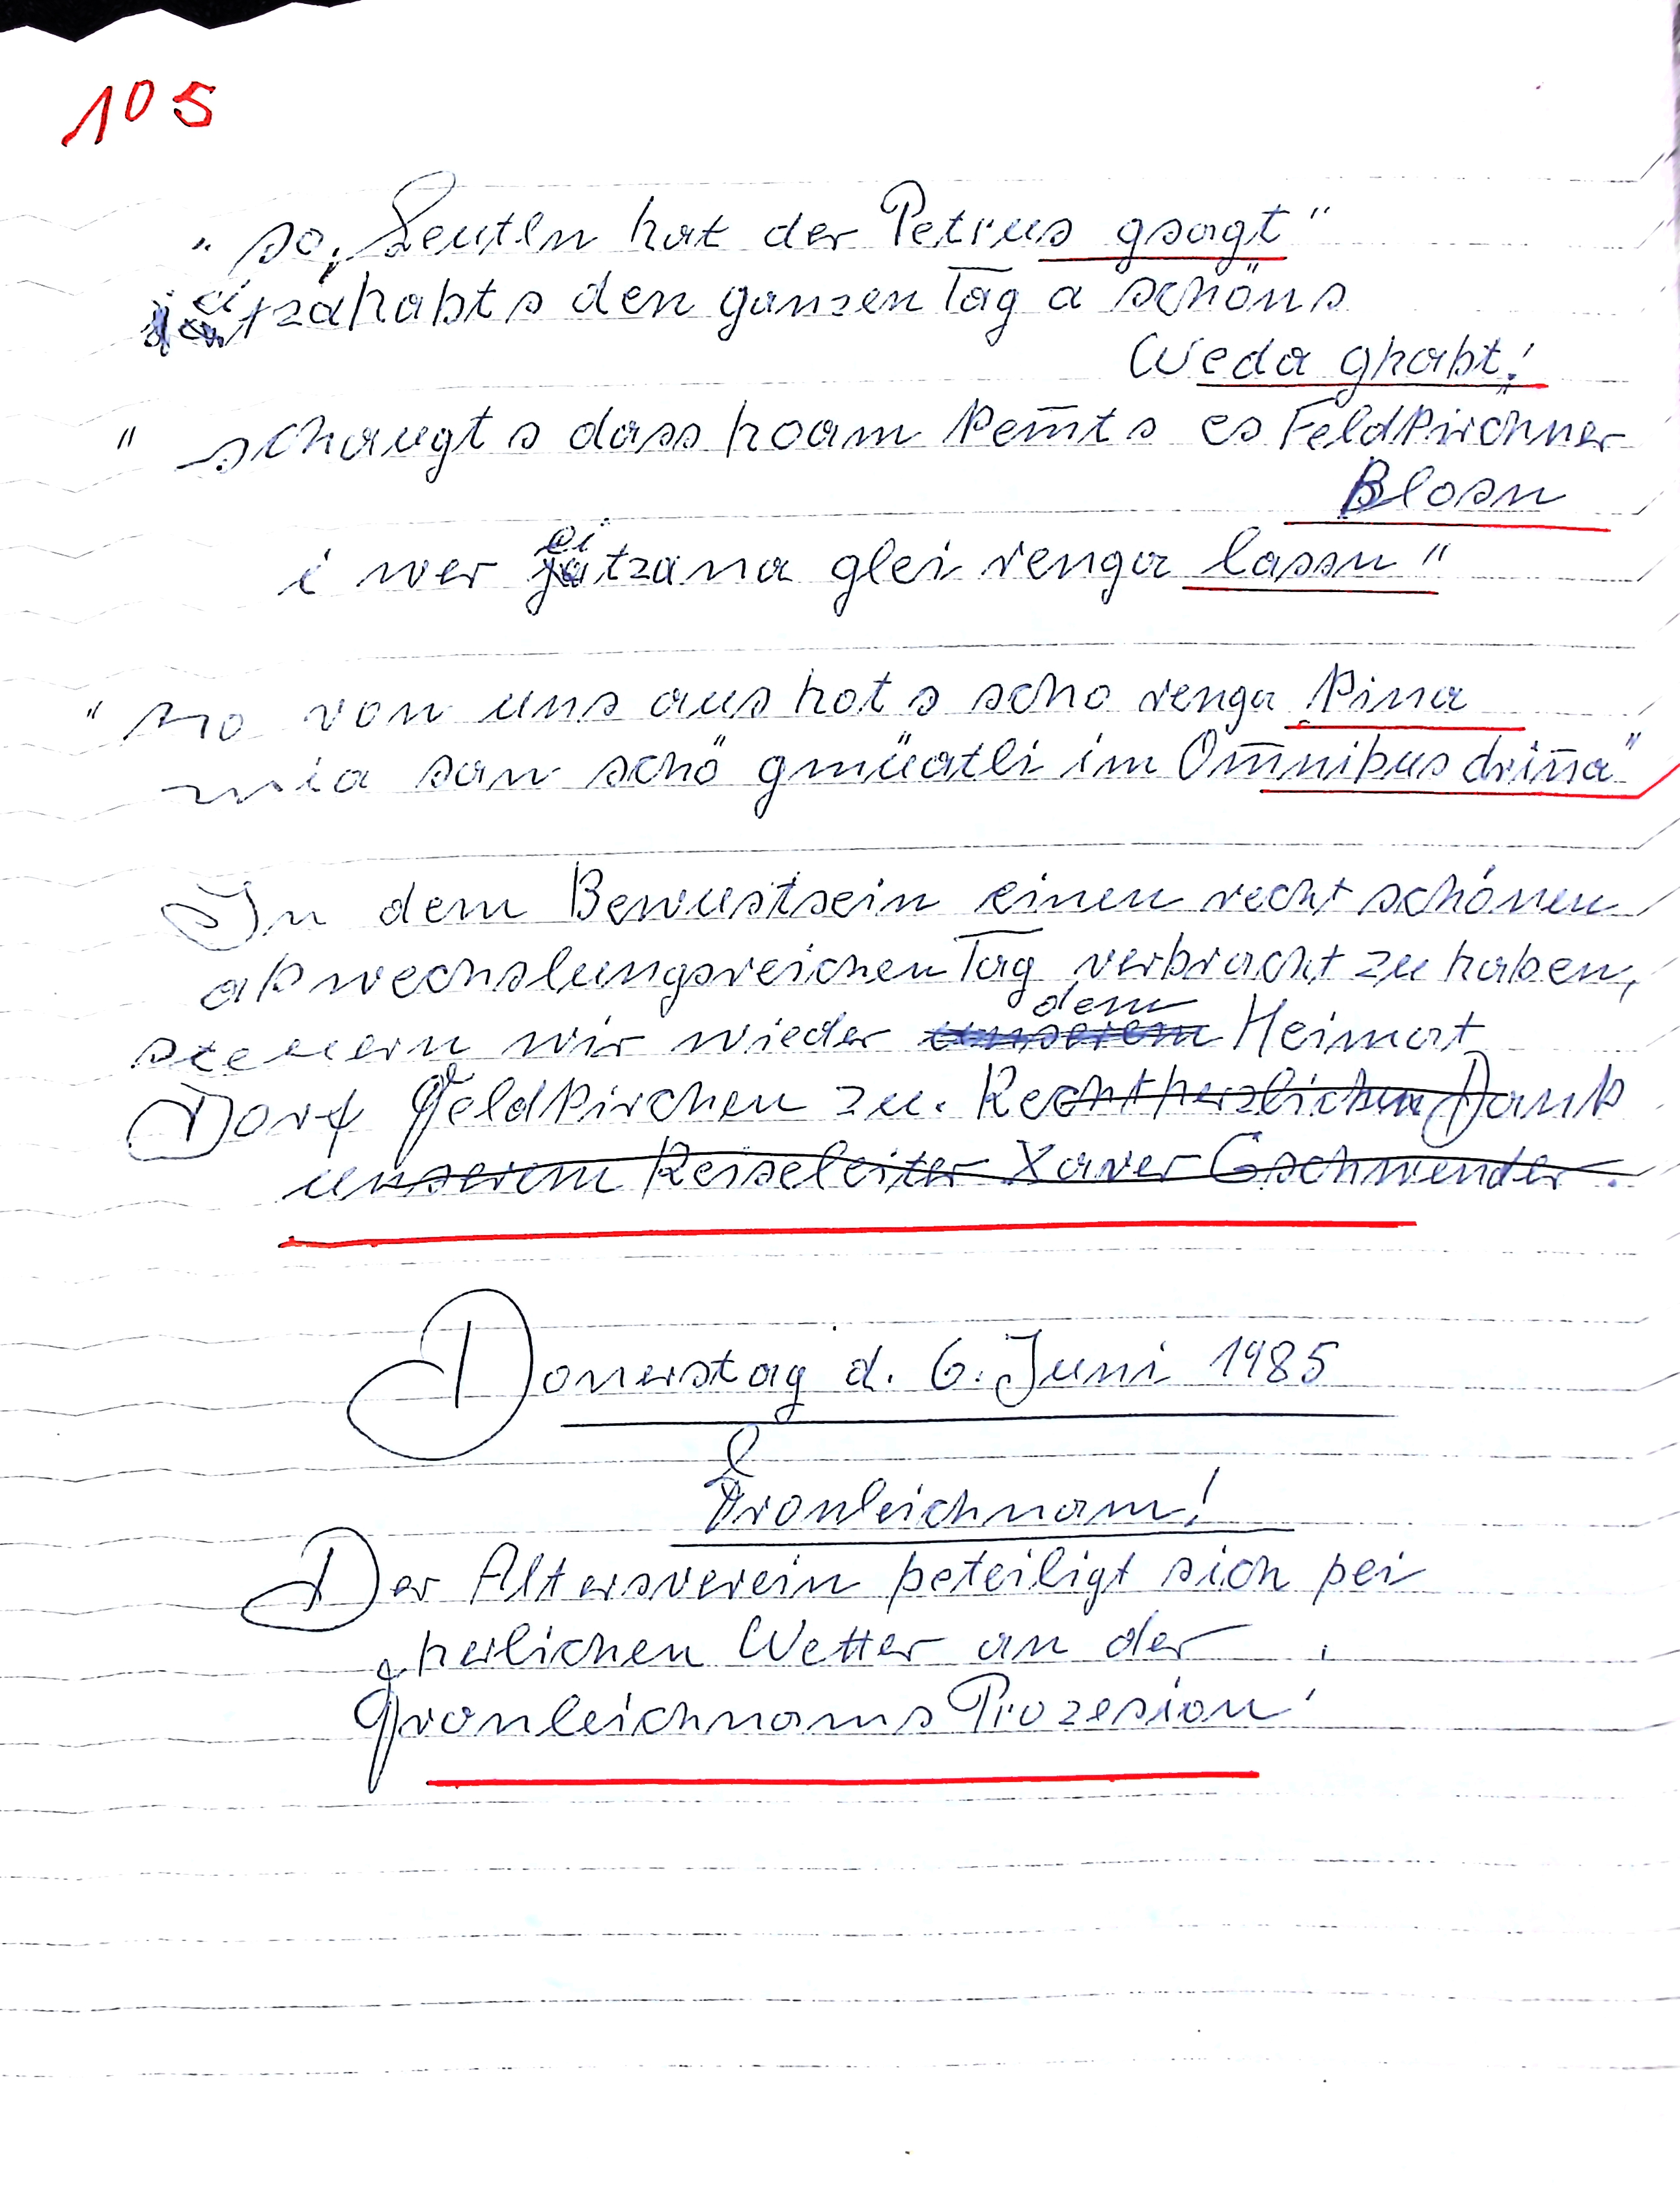 105
" so, Leutln hat der Petrus gsagt"
eitza habts den ganzen Tag a schöns
Weda ghabt!
" schaugts dass hoam kem̄ts es Feldkirchner
Blosn
i wer eitzana glei renga lassn "
" no von uns aus hots scho renga kina
mia san schö gmüatli im Om̄nibus drin̄a"
In dem Bewustsein einen recht schönen
abwechslungsreichen Tag verbracht zu haben,
steuern wir wieder dem Heimat
Dorf Feldkirchen zu. Recht herzlichen Dank
unserem Reiseleiter Xaver Gschwender.
Donerstag d. 6. Juni 1985
Fronleichnam!
Der Altersverein beteiligt sich bei
herlichen Wetter an der
Fronleichnams Prozesion!